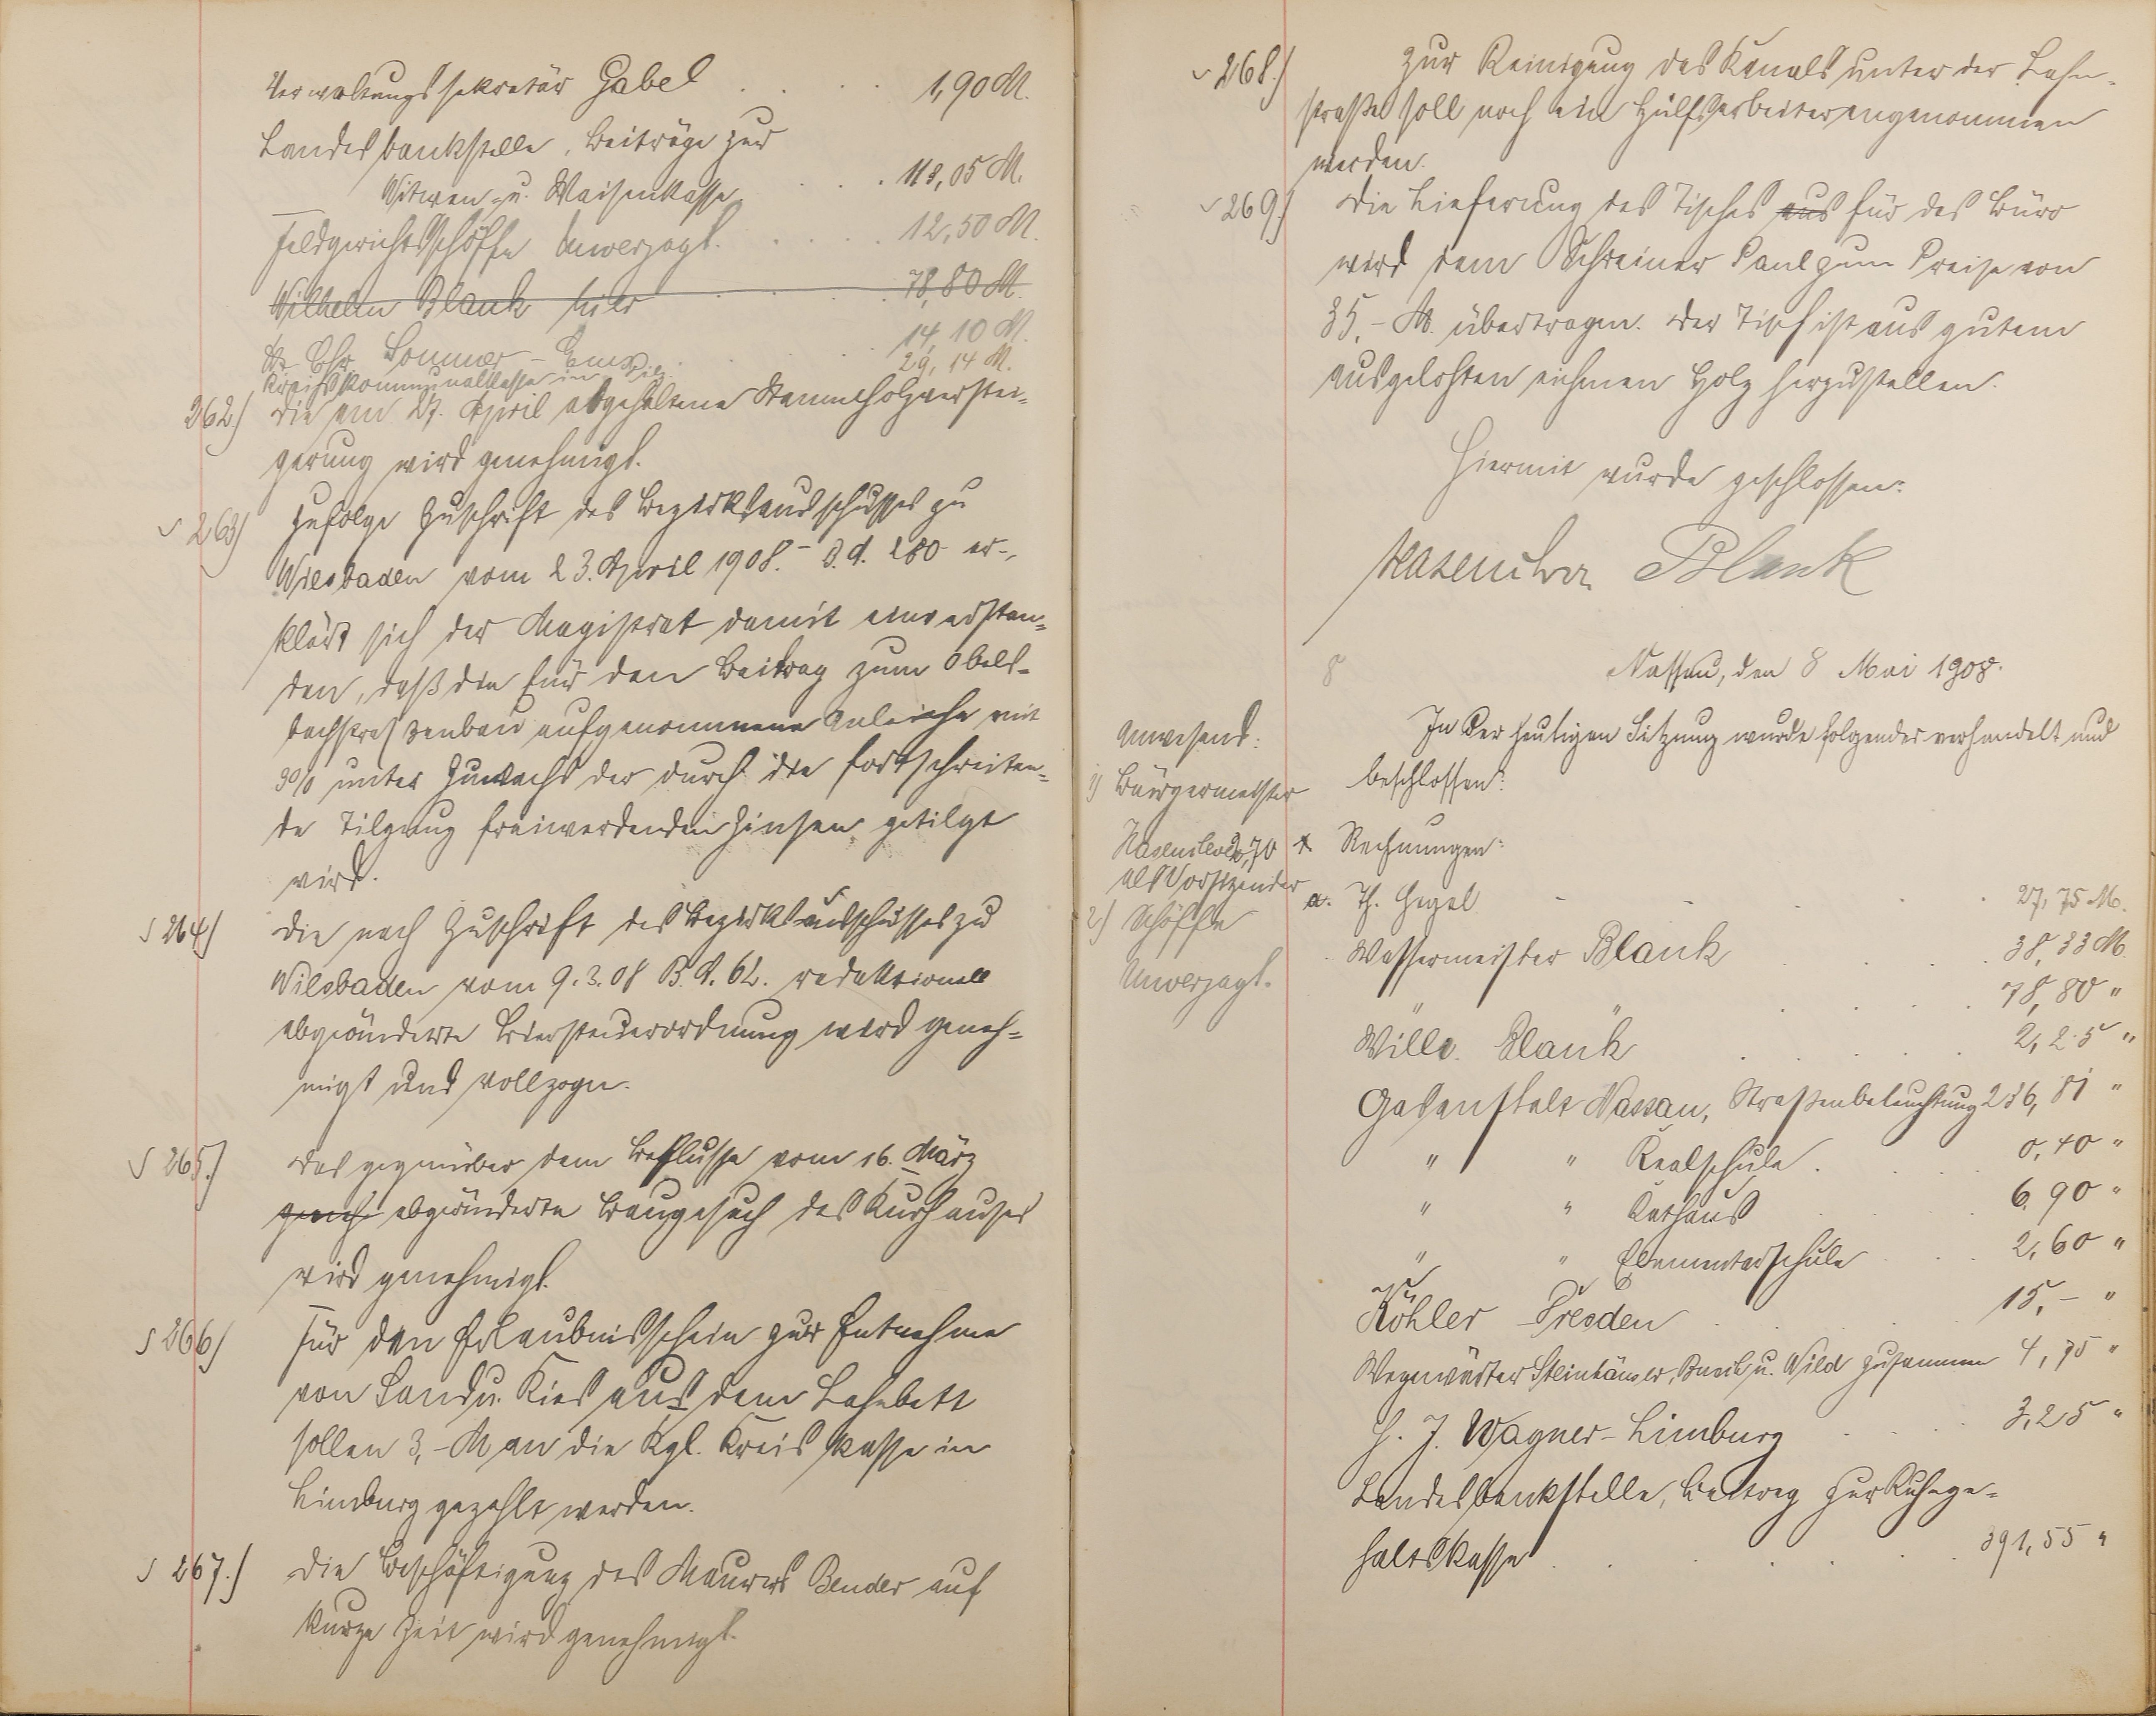 Verwaltungssekretär Gabel . . . . 1,90 M.
Landesbankstelle, Beiträge zur
Witwen- u. Waisenkasse . . . 113,05 M.
Feldgerichtsschöffe Unverzagt. . . . . 12,50 M.
Wilhelm Blank hier . . . 78,80 M.
Chr. Sommer - Ems . . . 14,10 M.
Kreiskommunalkasse in Diez . 29,14 M.
262.) Die am 27. April abgehaltene Stammholzverstei-
gerung wird genehmigt.
263) Zufolge Zuschrift des Bezirksausschusses zu
Wiesbaden vom 23. April 1908. - B.A. 280 er-
klärt sich der Magistrat damit einverstan-
den, daß die für den Beitrag zum Obels-
bachstraßenbau aufgenommene Anleihe mit
3% unter Zuwachs der durch die fortschreiten-
de Tilgung freiwerdenden Zinsen, getilgt
wird.
264) Die nach Zuschrift des Bezirksausschusses zu
Wiesbaden vom 9.3.08 B.A. 62. redaktionell
abgeänderte Biersteuerordnung wird geneh-
migt und vollzogen.
265.) Das gegenüber dem Beschlusse vom 16. März
abgeänderte Baugesuch des Kurhauses
wird genehmigt.
266) Für den Erlaubnisschein zur Entnahme
von Sand u. Kies aus dem Lahnbett
sollen 3,- M an die Kgl. Kreiskasse in
Limburg gezahlt werden.
267.) Die Beschäftigung des Maurers Bender auf
kurze Zeit wird genehmigt.
268.) Zur Reinigung des Kanals unter der Lahn-
straße soll noch ein Hülfsarbeiter angenommen
werden.
269.) Die Lieferung des Tisches aus für das Büro
wird dem Schreiner Paul zum Preise von
35,- M. übertragen. Der Tisch ist aus gutem
ausgelohten eichenen Holz herzustellen.
Hiermit wurde geschlossen:
Hasenclever Blank
Nassau, den 8 Mai 1908.
Anwesend:
1) Bürgermeister
Hasenclever
als Vorsitzender
2) Schöffe
Unverzagt.
In der heutigen Sitzung wurde folgendes verhandelt und
beschlossen:
270 Rechnungen:
a. Th. Hegel . . . . 27,75 M.
Wassermeister Blank . . . 38,33 M.
" " . . . . 78,80 "
Wilh. Blank . . . . 2,25 "
Gasanstalt Nassau, Straßenbeleuchtung 236,81 "
" " Realschule . . . 0,40 "
" " Rathaus . . 6,90 "
" " Elementarschule . . 2,60 "
Köhler Dresden . . . 15,- "
Wegewärter Steinhäuser, Busch u. Wild zusammen 4,75 "
H. J. Wagner - Limburg . . . 3,25 "
Landesbankstelle, Beitrag zur Ruhege-
haltskasse . . . . . 391,55 "